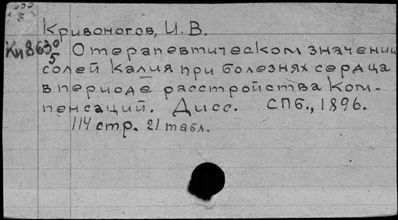 Кривоногов, И. В.
Кн 8630/5 О терапевтическом значении
солей калия при болезнях сердца
в периоде расстройства ком-
пенсаций. Дисс. СПб., 1896.
114 стр. 21 табл.